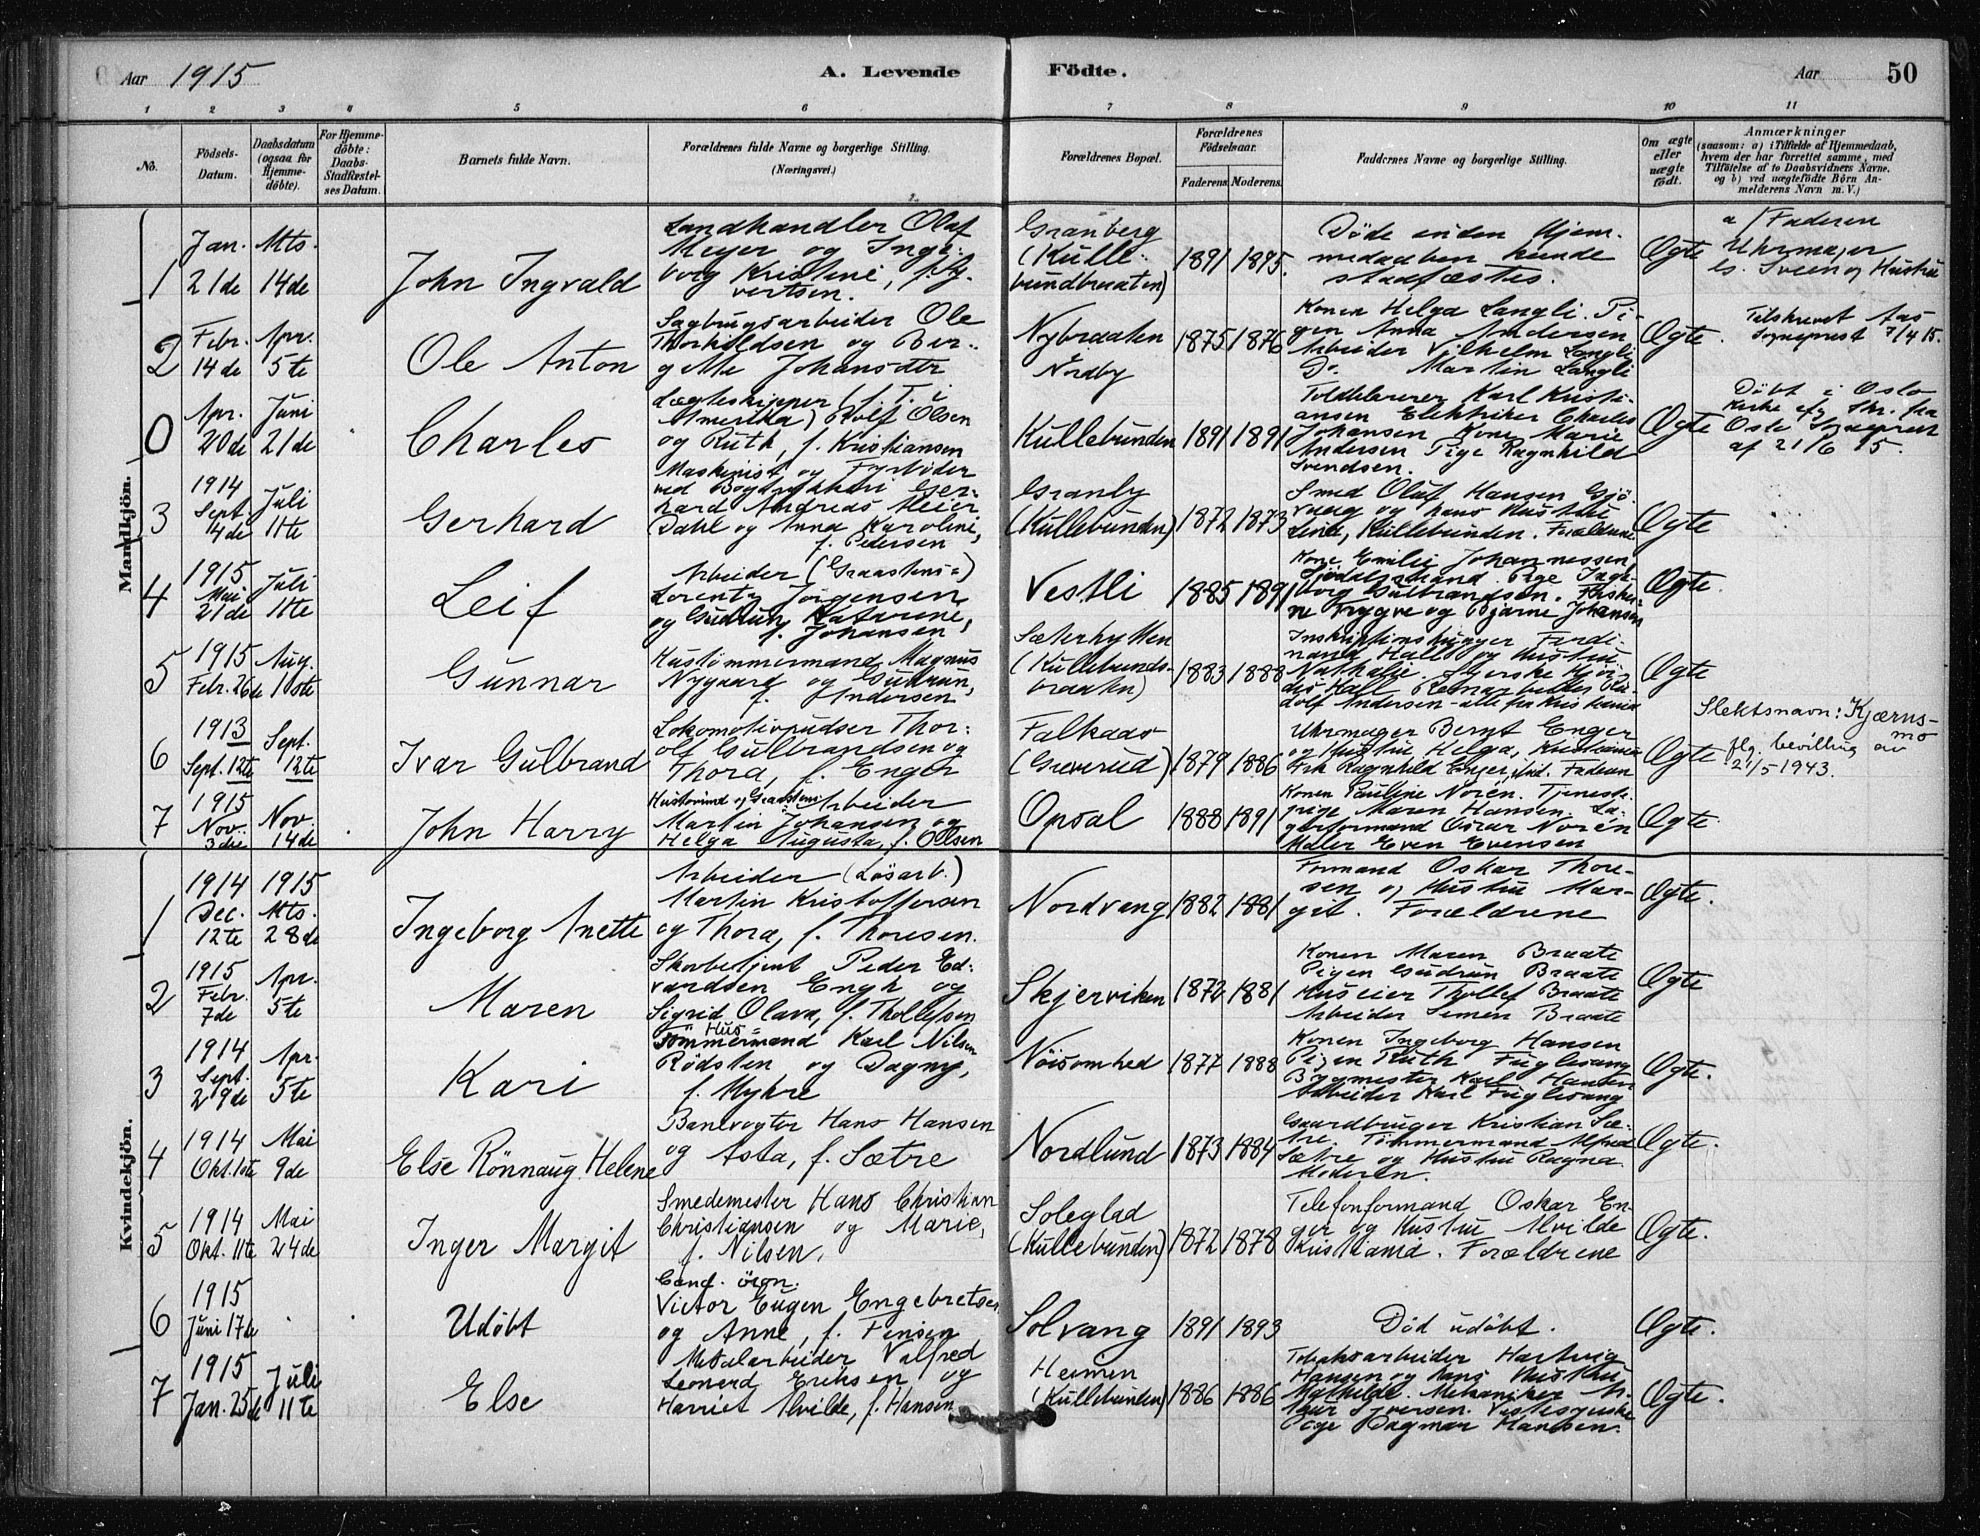 Aar 1915
A. Levende Födte.
Aar
50
1 2 3 4 5 6 7 8 9 10 11
No.
Födsels-
Datum.
Daabsdatum
(ogsaa for
Hjemme-
döbte).
For Hjemme-
döbte:
Daabs-
Stadfæstel-
ses Datum.
Barnets fulde Navn.
Forældrenes fulde Navne og borgerlige Stilling.
(Næringsvei.)
Forældrenes Bopæl.
Forældrenes
Födselsaar.
Faderens. Moderens.
Faddernes Navne og borgerlige Stilling.
Om ægte
eller
uægte
födt.
Anmærkninger
(saasom: a) i Tilfælde af Hjemmedaab,
hvem der har forrettet samme, med
Tilföielse af to Daabsvidners Navne,
og b) ved uægtefödte Börn An-
melderens Navn m. V.)
Mandkjön.
1
Jan.
21de
Mts.
14de
John Ingvald
Landhandler Olaf
Meyer og Inge-
borg Kristine, f. Sy-
vertsen.
Granberg
(Kulle-
bundbraaten)
1891 1895.
Døde inden Hjem-
medaaben kunde
stadfæstes.
Ægte
a/ Faderen
Uhrmager
Sveen og Hustru
2
Febr.
14de
Apr.
5te
Ole Anton
Sagbrugsarbeider Ole
Thorkildsen og Bir-
gitte Johansdtr
Nybraaten
Nordby
1875 1876
Konen Helga Langli. Pi-
gen Anna Andersen
Arbeider Vilhelm Langli
Do. Martin Langli
Ægte.
Tilskrevet Aas
Sogneprest 7/4 15.
0
Apr.
20de
Juni
21de
Charles
Lægteskipper (f. T. i
Amerika) Rolf Olsen
og Ruth, f. Kristiansen
Kullebunden
1891 1891
Karl Kristi-
ansen Elektriker Charles
Johansen Kone Marie
Andersen Pige Ragnhild
Svendsen.
Ægte
Døbt i Oslo
Kirke efg. Skr. fra
Oslo Sogneprest
af 21/6 15.
3
1914
Sept.
4de
Juli
11te
Gerhard
Maskinist og Fyrbøder
ved Bogtrykkeri Ger-
hard Andreas Meier
Dahl og Anna Karoline,
f. Pedersen
Granly
(Kullebunden)
1872 1873
Smed Oluf Hansen Gjö-
vaag og hans Hustru
Lina, Kullebunden. Forældrene
Ægte
4
1915
Mai
21de
Juli
11te
Leif
Arbeider (Graastens-)
Lorentz Jörgensen
og Gudrun Katrine,
f. Johansen
Vestli
1885 1891
Kone Emilie Johannessen,
Pige Inge-
borg Gulbrandsen. Fisker-
ne Trygve og Bjarne Johansen
Ægte.
5
1915
Febr. 26de
Aug.
10de
Gunnar
Hustømmermand Magnus
Nygaard og Gudrun,
f. Andersen
Sæterhytten
(Kullebunds-
braaten)
1883 1888
Ferdi-
nand Hall og Hustru
Nathalie. Syerske Hjör-
dis Hall Ru-
dolf Andersen - alle fra Kristiania
Ægte
6
1913
Sept. 12te
Sept.
12te
Ivar Gulbrand
Lokomotivpudser Thor-
olf Gulbrandsen og
Thora, f. Enger
Falkaas
(Greverud)
1879 1886
Uhrmager Bernt Enger
og Hustru Helga, Kristiania
Frk Ragnhild Enger, ibid. Faderen
Ægte
Slektsnavn: Kjærns-
mo
flg. bevilling av
21/5 1943.
7
1915
Nov.
3die
Nov.
14de
John Harry
Husmand og Graastens Arbeider
Martin Johansen og
Helga Augusta, f. Olsen
Opsal
1888 1891
Konen Pauline Noren. Tjeneste-
pige Maren Hansen. La-
gerformand Oscar Noren
Maler Even Evensen
Ægte.
Kvindekjön.
1
1914
Dec.
12te
1915
Mts.
28de
Ingeborg Anette
Arbeider (Løsarb.)
Martin Kristoffersen
og Thora, f. Thoresen.
Nordvang
1882 1881
Formand Oskar Thore-
sen og Hustru Mar-
git. Forældrene
Ægte.
2
1915
Febr.
7de
Apr.
5te
Maren
Skovbetjent Peder Ed-
vardsen Engh og
Sigrid Olava, f. Thollefsen
Skjerviken
1872 1881
Konen Maren Braate
Pigen Gudrun Braate
Huseier Thollef Braate
Arbeider Simen Braate
Ægte
3
1914
Sept.
29de
Apr.
5te
Kari
Hus-
tömmermand Karl Nilsen
Rødsten og Dagny,
f. Myhre
Nöisomhed
1877 1888
Konen Ingeborg Hansen
Pigen Ruth Fuglesang
Bygmester Karl Hansen
Arbeider Karl Fuglesang
Ægte.
4
1914
Okt. 1ste
Mai
9de
Else Rönnaug Helene
Banevogter Hans Hansen
og Asta, f. Sætre
Nordlund
1873 1884
Gaardbruger Kristian Sæ-
tre. Tömmermand Alfred
Sætre og Hustru Ragna
Moderen.
Ægte.
5
1914
Okt. 11te
Mai
24de
Inger Margit
Smedemester Hans Christian
Christiansen og Marie,
f. Nilsen.
Soleglad
(Kullebunden)
1872 1878
Telefonformand Oskar En-
ger og Hustru Alvilde
Kristiania. Forældrene
Ægte.
6
1915
Juni 17de
Udöbt
Cand. øcon.
Victor Eugen Engebretsen
og Anne, f. Jensen
Solvang
1891 1893
Död udöbt.
Ægte.
7
1915
Jan. 25de
Juli
11te
Else
Metalarbeider Valfred
Leonerd Eriksen og
Harriet Alvilde, f. Hansen
Heimen
(Kullebunden)
1886 1886
Tobaksarbeider Hartvig
Hansen og hans Hustru
Mathilde. Mekaniker
Iversen.
Pige Dagmar Hansen.
Ægte.